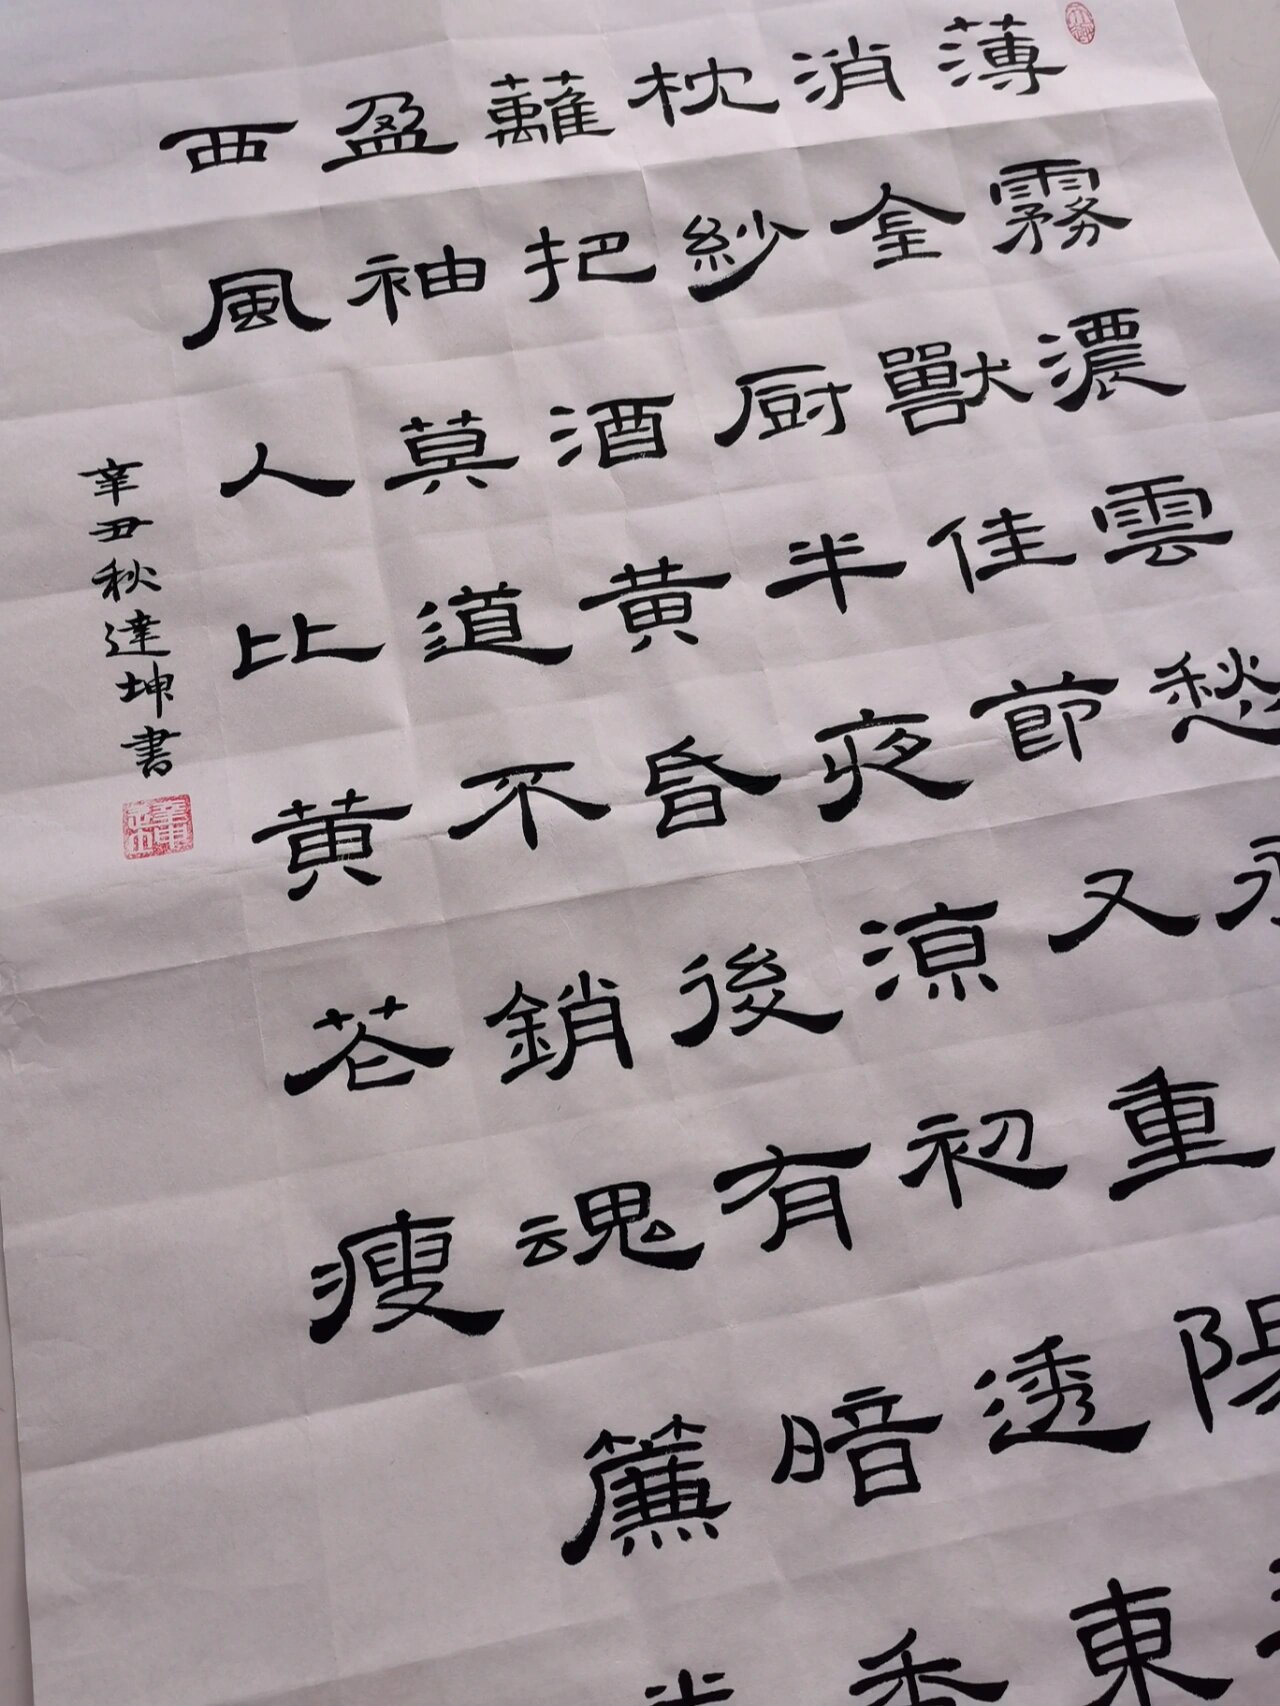 薄霧濃雲愁永
消金獸佳節又重陽
枕紗厨半夜涼初透東
蘺把酒黄昏後有暗香
盈袖莫道不銷魂簾
西風人比黄花瘦
辛丑秋達坤書